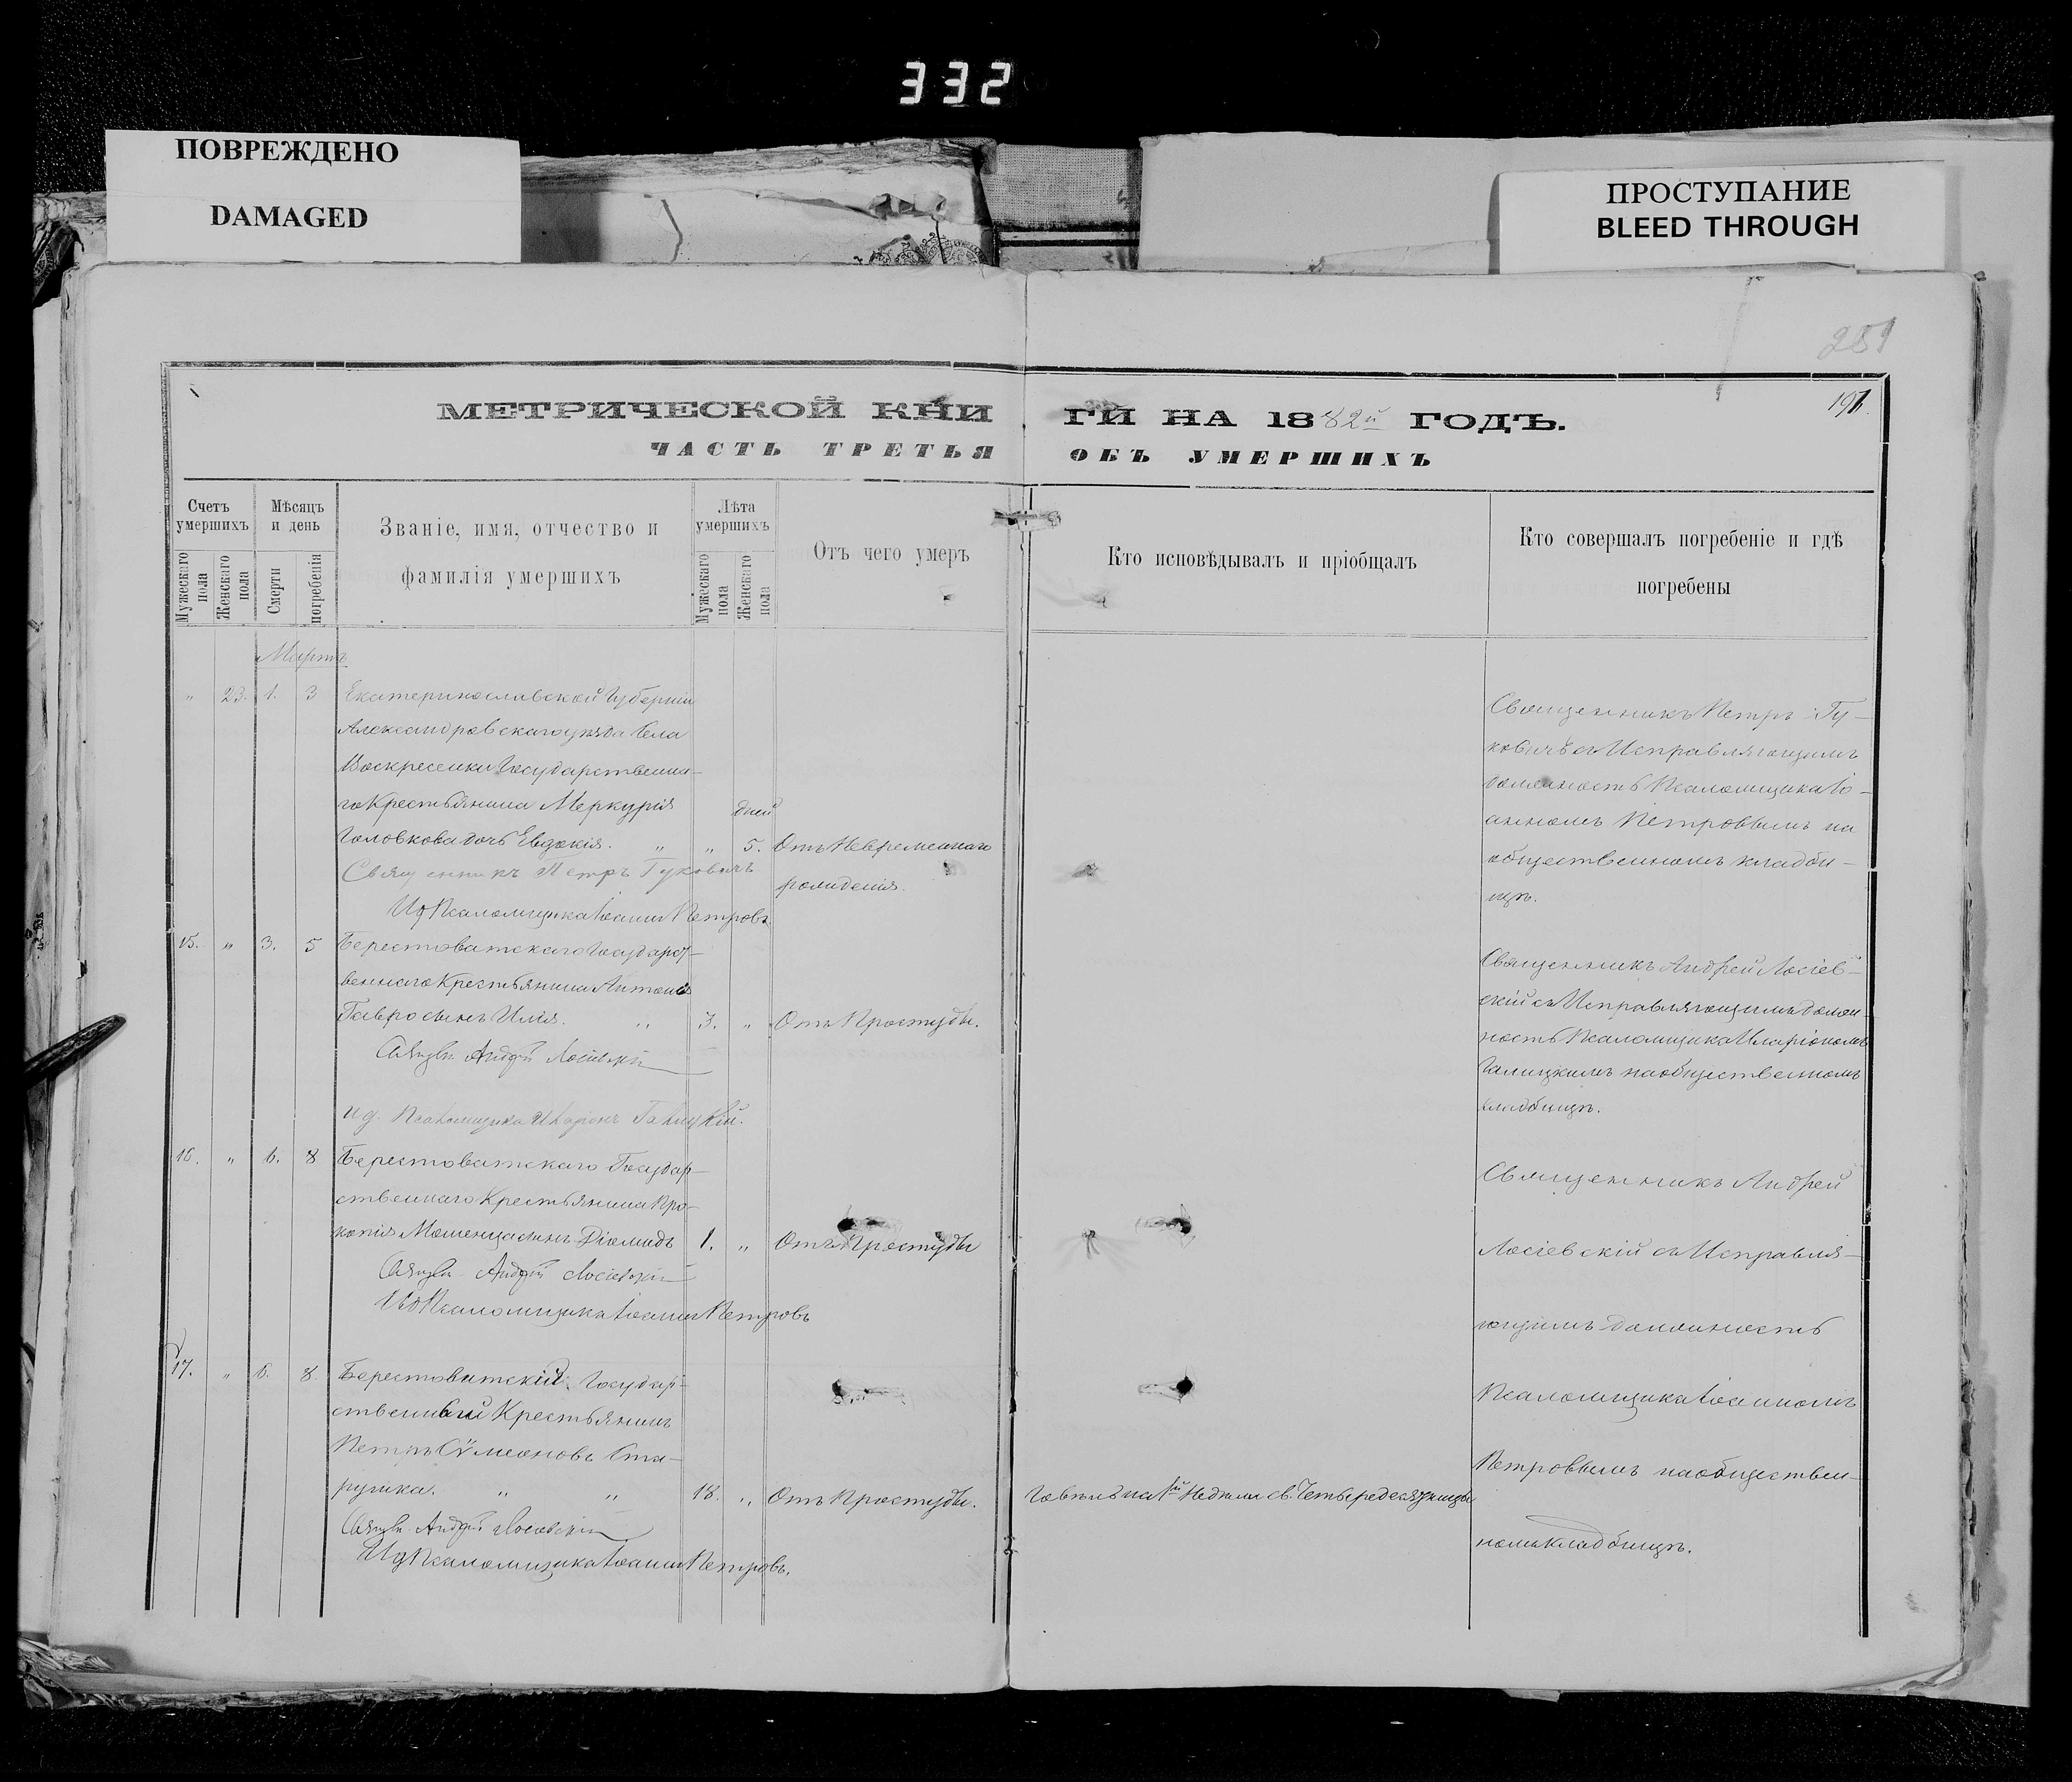 332
ПОВРЕЖДЕНО
DAMAGED
ПРОСТУПАНИЕ
BLEED THROUGH
281
191.
МЕТРИЧЕСКОЙ КНИ ГИ НА 1882й ГОДЪ.
ЧАСТЬ ТРЕТЬЯ ОБЪ УМЕРШИХЪ
Счетъ умершихъ
Мужескаго пола
Женскаго пола
Мѣсяцъ и день
Смерти
погребенія
Званіе, имя, отчество и
фамилія умершихъ
Лѣта умершихъ
Мужескаго пола
Женскаго пола
Отъ чего умеръ
Кто исповѣдывалъ и пріобщалъ
Кто совершалъ погребеніе и гдѣ
погребены
Мартъ
„ 23. 1. 3 Екатеринославской Губерніи
Александровскаго уѣзда Села
Воскресенки Государственна-
го Крестьянина Меркурія дней
Головкова дочь Евдокія. „ „ 5. Отъ Невременнаго
рожденія.
Священникъ Петръ Гуковичъ
Ид Псаломщика Іоаннъ Петровъ
Священникъ Петръ Гу-
ковичъ съ Исправляющимъ
должность Псаломщика Іо-
анномъ Петровымъ на
общественномъ кладби-
щѣ.
15. „ 3. 5 Берестоватскаго Государст-
веннаго Крестьянина Антона
Гавро сынъ Илія. „ 3. „ Отъ Простуды.
Священ. Андрей Лосіевскій
ид. Псаломщика Иларіонъ Галицкій.
Священникъ Андрей Лосіев-
скій съ Исправляющимъ долж-
ность Псаломщика Иларіономъ
Галицкимъ на общественномъ
кладбищѣ.
16. „ 6. 8 Берестоватскаго Государ-
ственнаго Крестьянина Про-
копія сынъ Діомидъ 1. „ Отъ Простуды
Священ. Андрей Лосіевскій
Ид Псаломщика Іоаннъ Петровъ
17. „ 6. 8. Берестоватскій Государ-
ственный Крестьянинъ
Петръ Сѵмеоновъ Ста-
рушка. „ „ 18. „ Отъ Простуды. Говѣлъ на 1й Недѣли св. Четыредесятницы
Священ. Андрей Лосіевскій
Ид Псаломщика Іоаннъ Петровъ.
Священникъ Андрей
Лосіевскій съ Исправля-
ющимъ должность
Псаломщика Іоанномъ
Петровымъ на обществен-
номъ кладбищѣ.